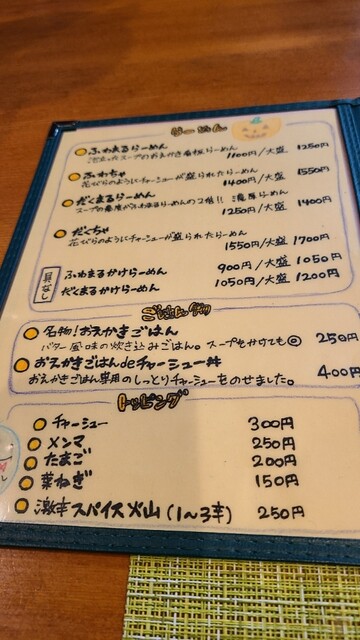 らーめん
ふわまるらーめん
泡立ったスープのおえかき看板らーめん
1100円/大盛 1250円
ふわちゃ
花びらのようにチャーシューが盛られたらーめん
1400円/大盛 1550円
だくまるらーめん
スープの濃度がふわまるらーめんの2倍!! 濃厚らーめん
1250円/大盛 1400円
だくちゃ
花びらのようにチャーシューが盛られたらーめん
1550円/大盛 1700円
具なし
ふわまるかけらーめん 900円/大盛 1050円
だくまるかけらーめん 1050円/大盛 1200円
名物!おえかきごはん 250円
バター風味の炊き込みごはん。スープをかけても◎
おえかきごはんdeチャーシュー丼 400円
おえかきごはん専用のしっとりチャーシューをのせました。
トッピング
チャーシュー 300円
メンマ 250円
たまご 200円
葉ねぎ 150円
激辛スパイス火山(1〜3辛) 250円